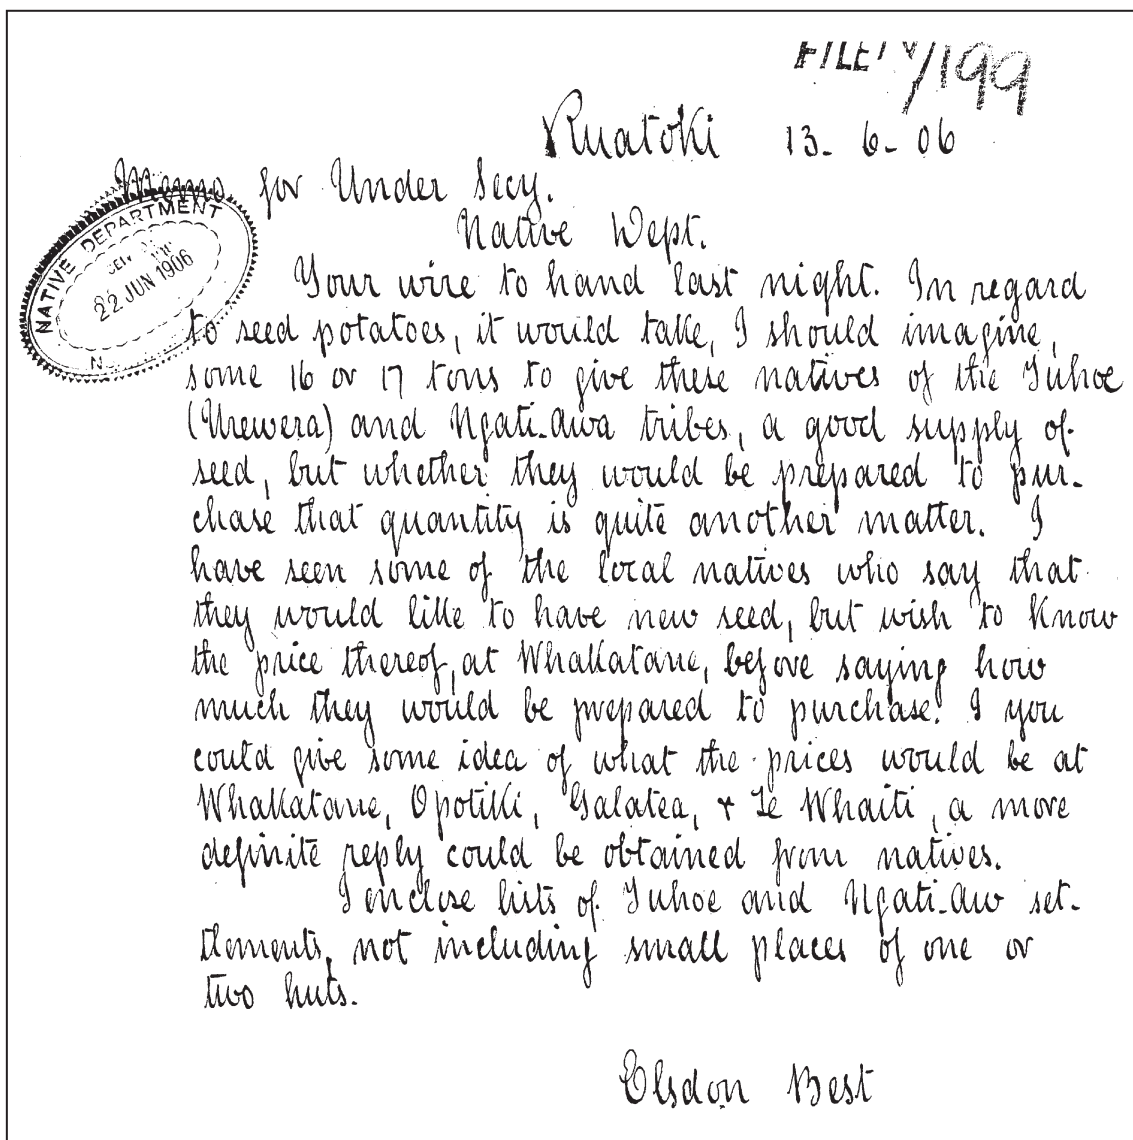 FILE /199
Ruatoki 13-6-06
Memo for Under Secy.
Native Dept.
NATIVE DEPARTMENT
22 JUN 1906
Your wire to hand last night. In regard
to seed potatoes, it would take, I should imagine,
some 16 or 17 tons to give these natives of the Tuhoe
(Urewera) and Ngati-Awa tribes, a good supply of
seed, but whether they would be prepared to pur-
chase that quantity is quite another matter. I
have seen some of the local natives who say that
they would like to have new seed, but wish to know
the price thereof, at Whakatane, before saying how
much they would be prepared to purchase. I you
could give some idea of what the prices would be at
Whakatane, Opotiki, Galatea, & Te Whaiti, a more
definite reply could be obtained from natives.
I enclose lists of Tuhoe and Ngati-Aw set-
tlements, not including small places of one or
two huts.
Elsdon Best